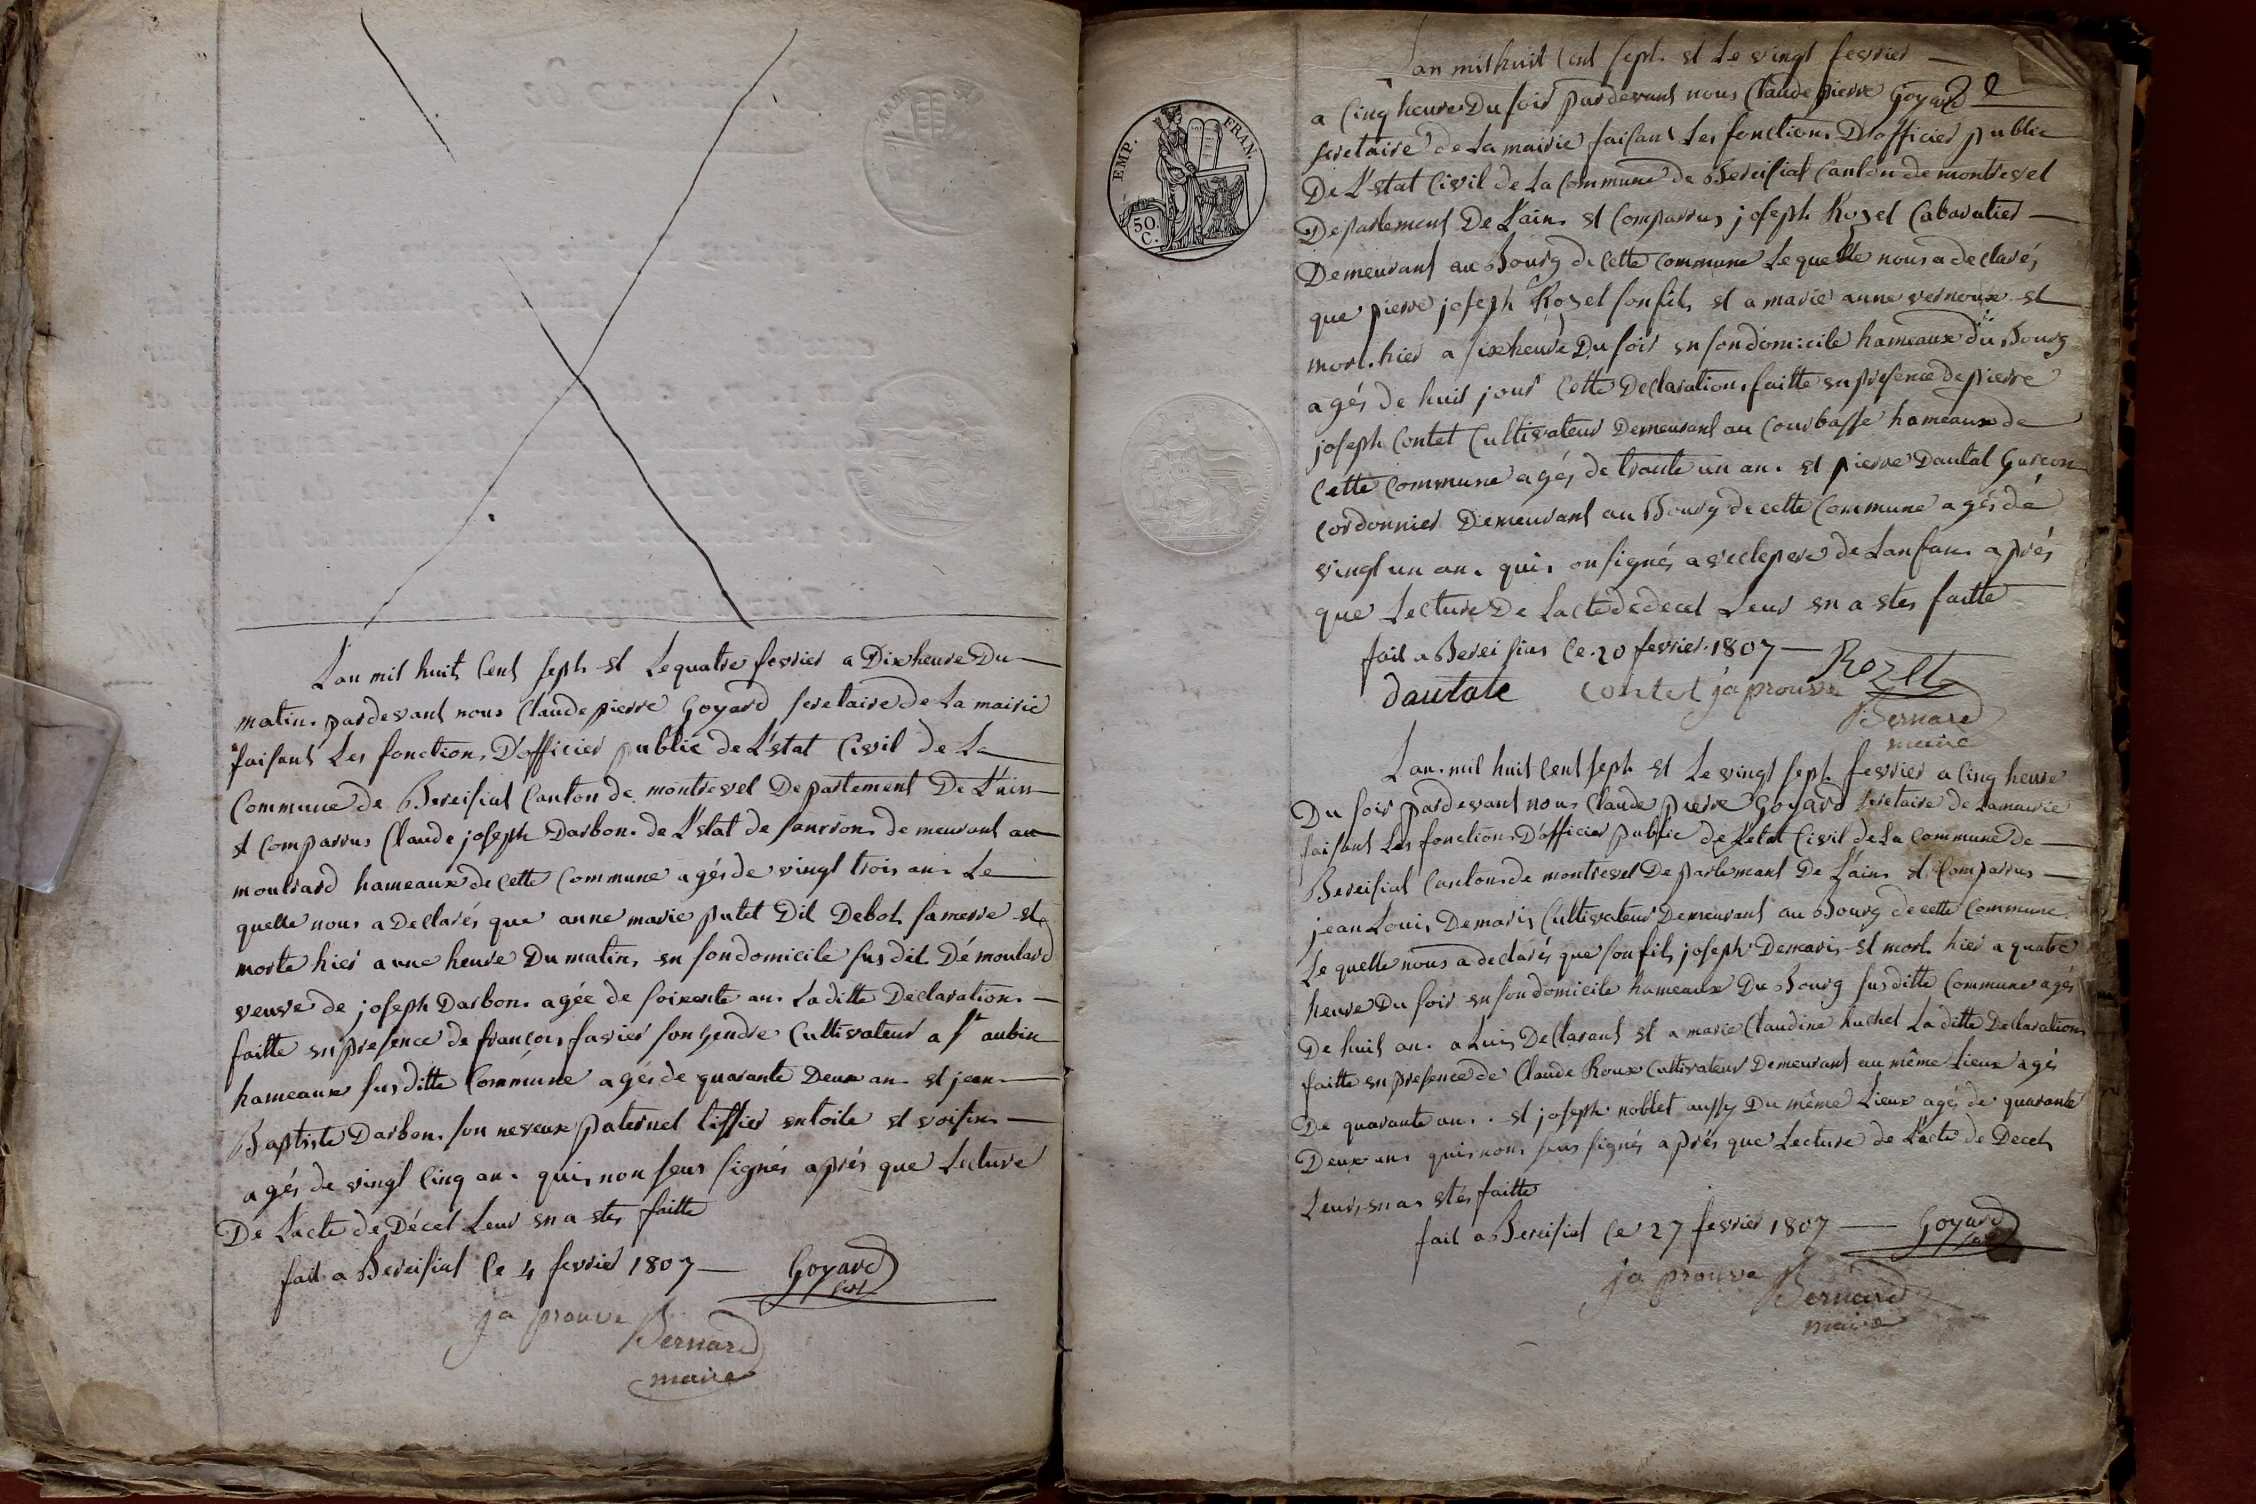 Lan mil huit Cent sept et Le quatre fevrier a Dix heure Du
matin pardevant nous Claude pierre Goyard secretaire de La mairie
faisant Les fonction D'officier public de L'etat Civil de La
Commune de Bereisiat Canton de montrevel Departement De L'ain
et Comparrus Claude joseph Darbon de L'etat de demeurant au
moulrard hameaux de cette Commune agés de vingt trois an Le
quelle nous a Declarés que anne marie putet Dit Debot sa merre est
morte hier a une heure Du matin en son domicile susdit Démoulard
veuve de joseph Darbon agée de soixente an La ditte Declaration
faitte en presence de françois favier son gendre Cultivateur a St aubin
hameaux susditte Commune agés de quarante Deux an et jean
Baptiste Darbon son neveux paternel tissier en toile et voisin
agés de vingt Cinq an qui non seus signés aprés que Lecture
De L'acte de Décet Leur en a etes faitte
fait a Bereisiat Ce 4 fevrier 1807 Goyard
secr
ja prouve
Bernard
maire
Lan mil huit Cent sept et Le vingt fevrier
2e
a Cinq heure Du soir pardevant nous Claude pierre Goyard
secretaire de La mairie faisant Les fonction D'officier public
De L'etat Civil de La Commune de Bereisiat Canton de montrevel
Departement De L'ain et Comparrus joseph Rozet Cabaratier
Demeurant au Bourg de Cette Commune Le quelle nous a declarés
que pierre joseph Rozet son fils et a marie anne vernoux est
mort hier a six heure Du soir en son domicile hameaux du Bourg
agés de huit jour Cette Declaration faitte en presence de pierre
joseph Contet Cultivateur Demeurant au Courbasse hameaux de
Cette Commune agés de trante un an et pierre Dautal Garcon
Cordonnier Demeurant au Bourg de cette Commune agés de
vingt un an qui on signés avec le pere de Lanfan aprés
que Lecture De Lacte de decet Leur en a etes faitte
fait a Bereisiat Ce 20 fevrier 1807 Rozet
dautale contet ja prouve
Bernard
maire
Lan mil huit Cent sept et Le vingt sept fevrier a Cinq heure
Du soir pardevant nous Claude pierre Goyard secretaire de La mairie
faisant Les fonction D'officier public de L'etat Civil de La Commune de
Bereisiat Canton de montrevel Departemant De L'ain et Comparrus
jean Louis Demaris Cultivateur Demeurant au Bourg de cette Commune
Le quelle nous a declarés que son fils joseph Demaris est mort hier a quatre
heure Du soir en son domicile hameaux Du Bourg susditte Commune agés
De huit an a Luis Declarant et a marie Claudine huchet La ditte Declaration
faitte en presence de Claude Roux Cultivateur Demeurant au même Lieux agés
De quarante an et joseph noblet aussy Du même Lieux agés de quarante
Deux an qui non seus signés aprés que Lecture de L'acte de Decet
Leurs en as etés faitte
fait a Bereisiat Ce 27 fevrier 1807 Goyard
secr
ja prouve
Bernard
maire
EMP. FRAN.
50
C.